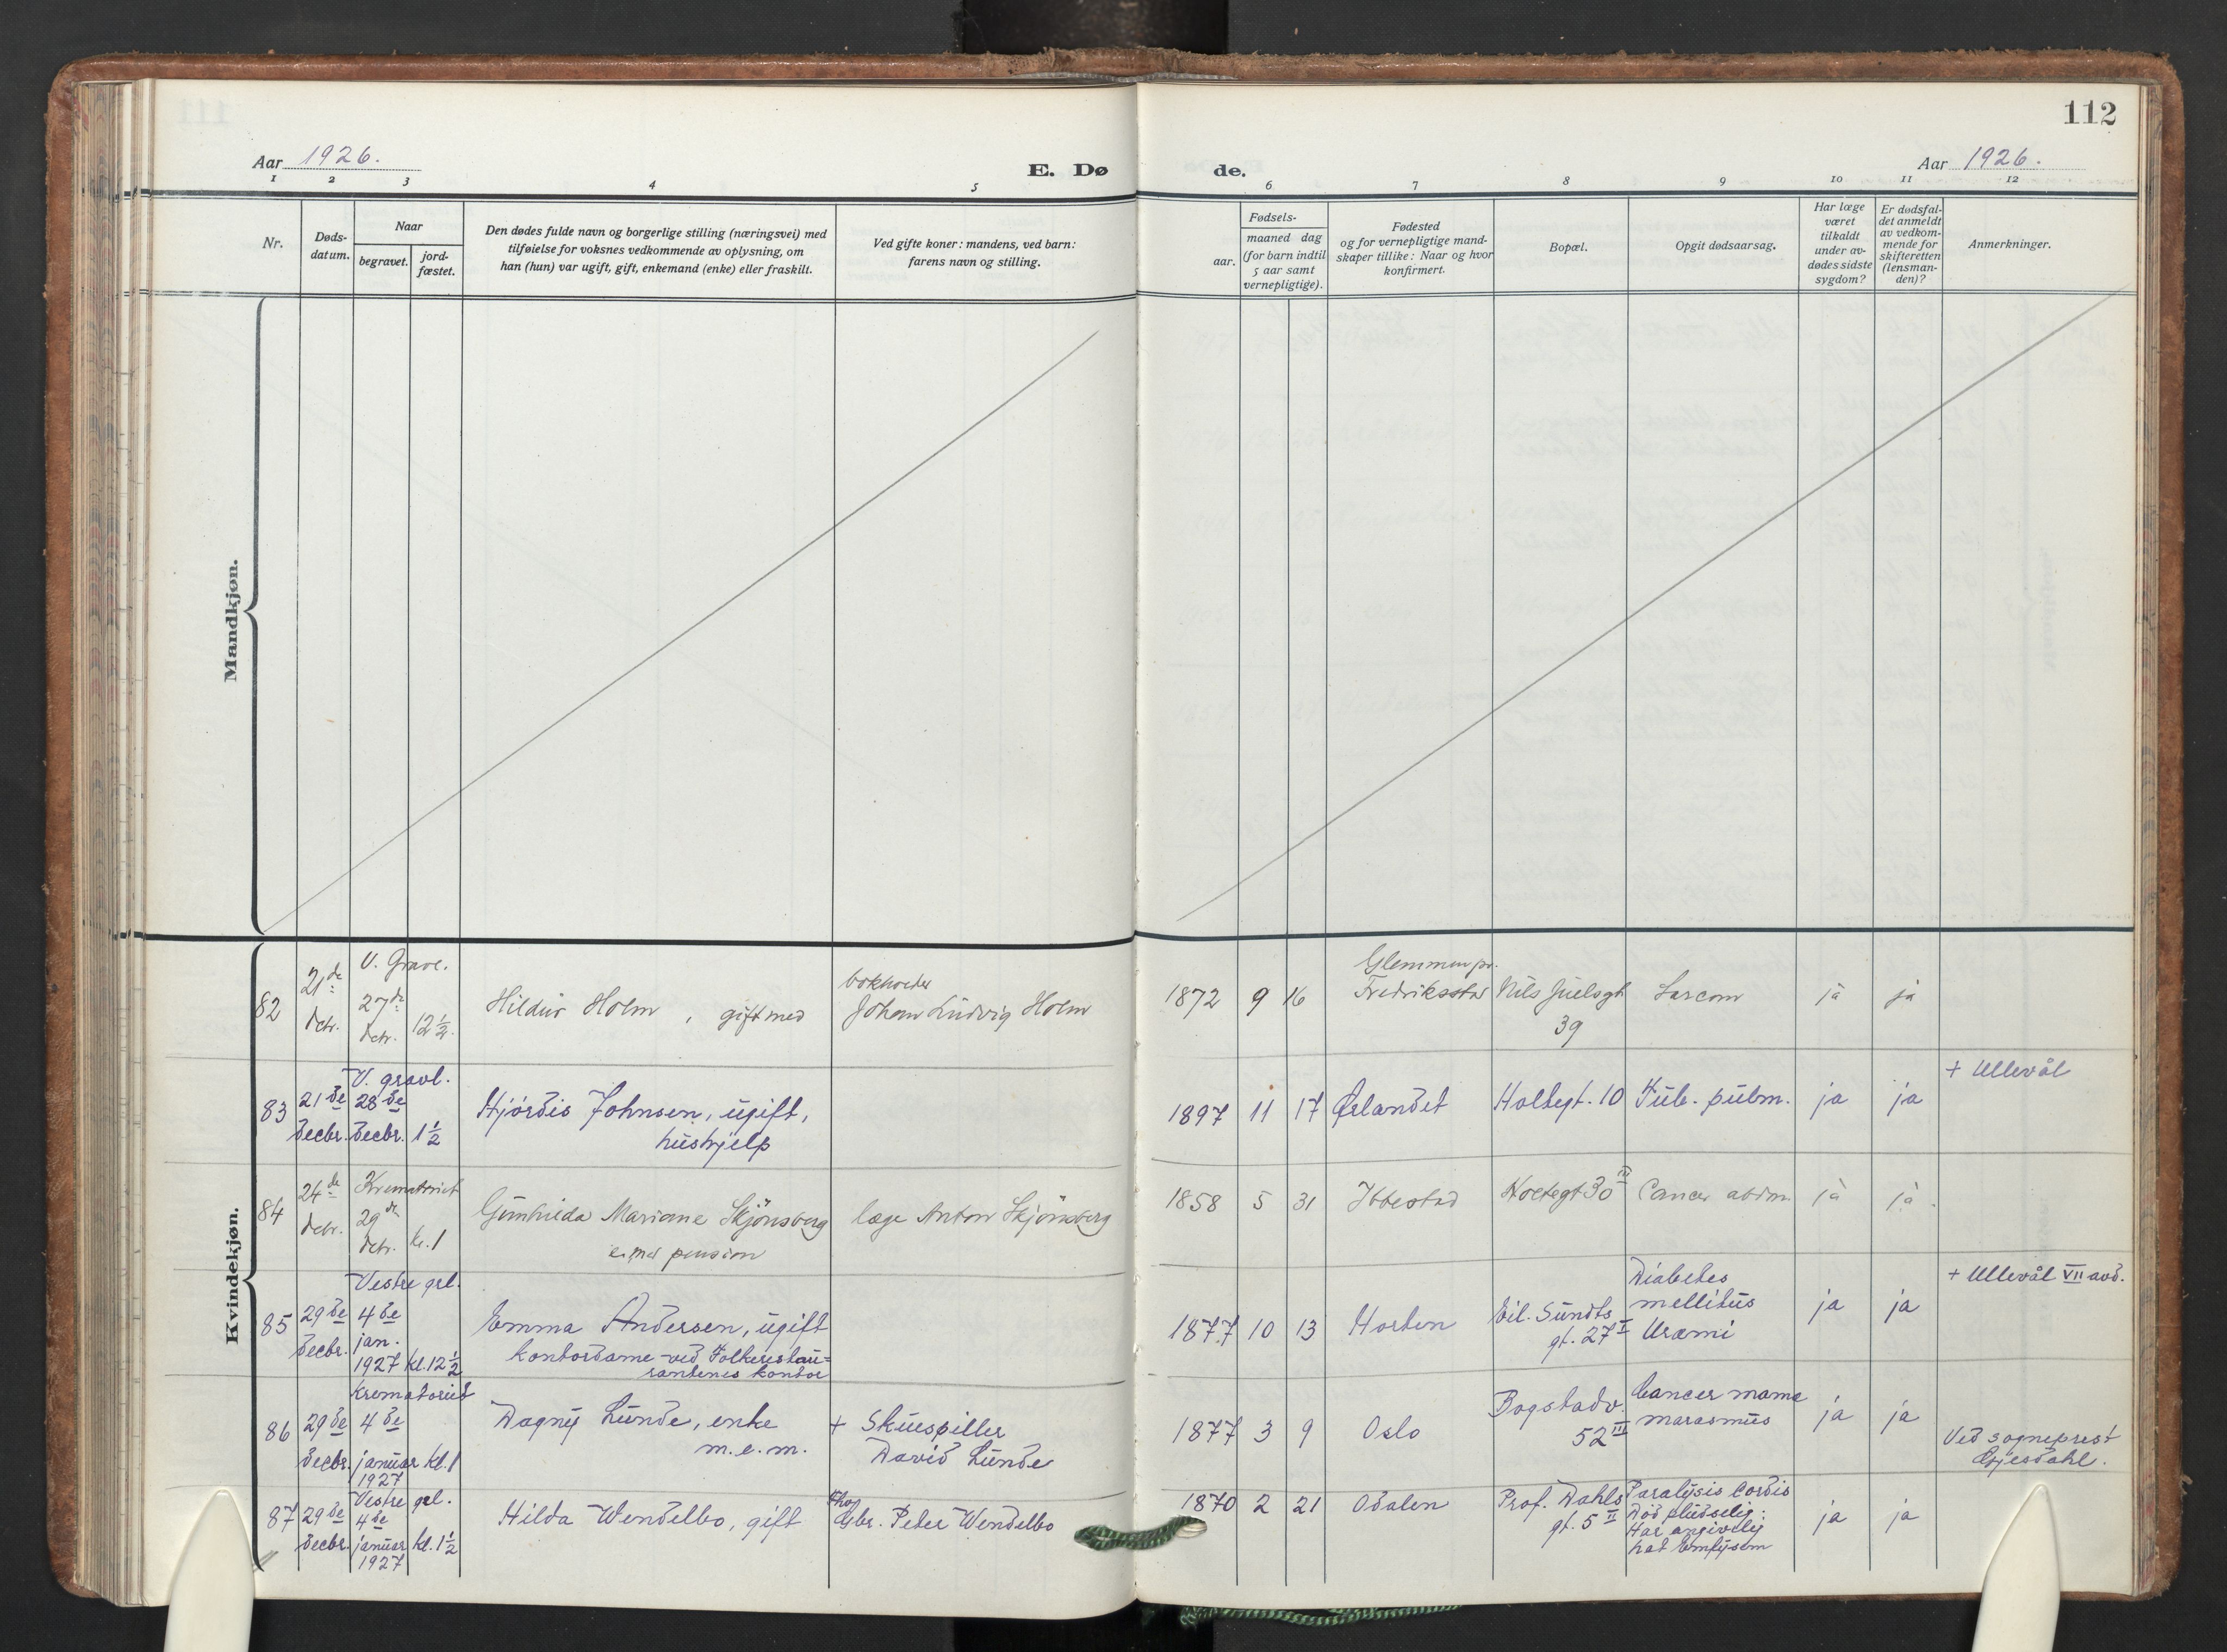 112
Aar 1926.
E. Dø
de.
Aar 1926.
1 2 3 4 5 6 7 8 9 10 11 12
Nr.
Døds-
datum.
Naar
begravet.
jord-
fæstet.
Den dødes fulde navn og borgerlige stilling (næringsvei) med
tilføielse for voksnes vedkommende av oplysning, om
han (hun) var ugift, gift, enkemand (enke) eller fraskilt.
Ved gifte koner: mandens, ved barn:
farens navn og stilling.
Fødsels-
aar.
maaned dag
(for barn indtil
5 aar samt
vernepligtige).
Fødested
og for vernepligtige mand-
skaper tillike: Naar og hvor
konfirmert.
Bopæl.
Opgit dødsaarsag.
Har læge
været
tilkaldt
under av-
dødes sidste
sygdom?
Er dødsfal-
det anmeldt
av vedkom-
mende for
skifteretten
(lensman-
den)?
Anmerkninger.
Mandkjøn.
Kvindekjøn.
82
21de
dcbr.
V. Grave.
27de
dcbr.
12½.
Hildur Holm, gift med
bokholder
Johan Ludvig Holm
1872 9 16
Glemmen pr.
Fredriksstad
Nils Juelsgt
39
Sarcom
ja
ja
83
21de
decbr.
V. gravl.
28de
decbr.
1½
Hjördis Johnsen, ugift,
hushjelp
1897 11 17
Ørlandet
Holtegt. 10
Tub. pulm.
ja
ja
+ Ullevål
84
24de
dcbr.
Krematoriet
29de
dcbr.
kl. 1
Gunhilda Mariane Skjönsberg
e. med pension
læge Anton Skjönsberg
1858 5 31
Ibbestad
Holtegt 30 III
Cancer abdm.
ja
ja.
85
29de
decbr.
Vestre grl.
4de
jan.
1927
kl. 12½
Emma Andersen, ugift
kontordame ved Folkerestau=
rantenes kontor
1877 10 13
Horten
Eil. Sundts
gt. 27 I
Diabetes
mellitus
Uræmi
ja
ja
+ Ullevål VII avd.
86
29de
decbr.
Krematoriet
4de
januar
1927
kl. 1
Dagny Lunde, enke
m. e. m.
+ Skuespiller
David Lunde
1877 3 9
Oslo
Bogstadv.
52 III
Cancer mama
marasmus
ja
ja
Ved sogneprest
Gjesdahl.
87
29de
decbr.
Vestre grl.
4de
januar
1927
kl. 1½
Hilda Wendelbo, gift
Gbr. Peter Wendelbo
1870 2 21
Odalen
Prof. Dahls
gt. 5 II
Paralysis cordis
Död pludselig:
Har angivelig
hat Emfysem
ja
ja